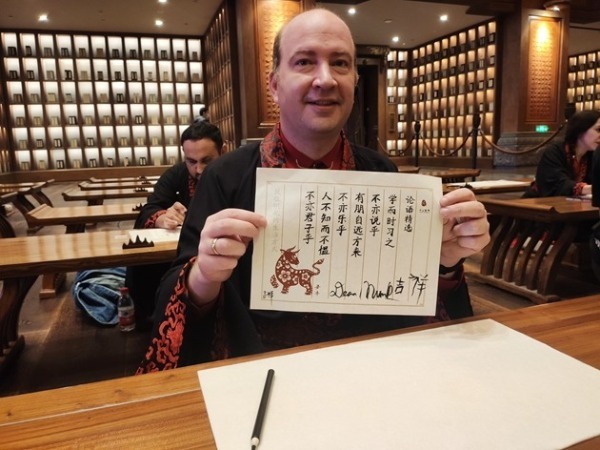 论语精选
学而时习之
不亦说乎
有朋自远方来
不亦乐乎
人不知而不愠
不亦君子乎
吉祥